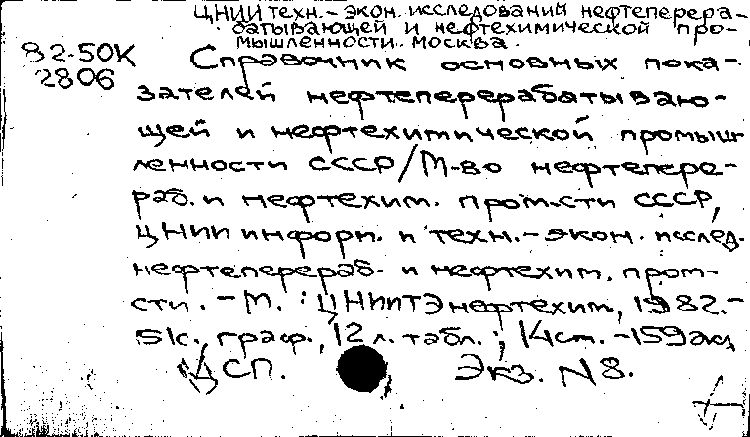 ЦНИИ техн.-экон. исследований нефтеперера-
батывающей и нефтехимической про-
мышленности. Москва.
82-50К
2806
Справочник основных пока-
зателей нефтеперерабатываю-
щей и нефтехимической промыш-
ленности СССР/М-во нефтепере-
раб. и нефтехим. пром-сти СССР,
ЦНИИ информ. и техн.-экон. исслед.
нефтеперераб. и нефтехим. пром-
сти. - М. : ЦНИИТЭнефтехим, 1982.-
5 к. граф., 12 л. табл.; 14 см. - 159 экз
ДСП. Экз. N 8.